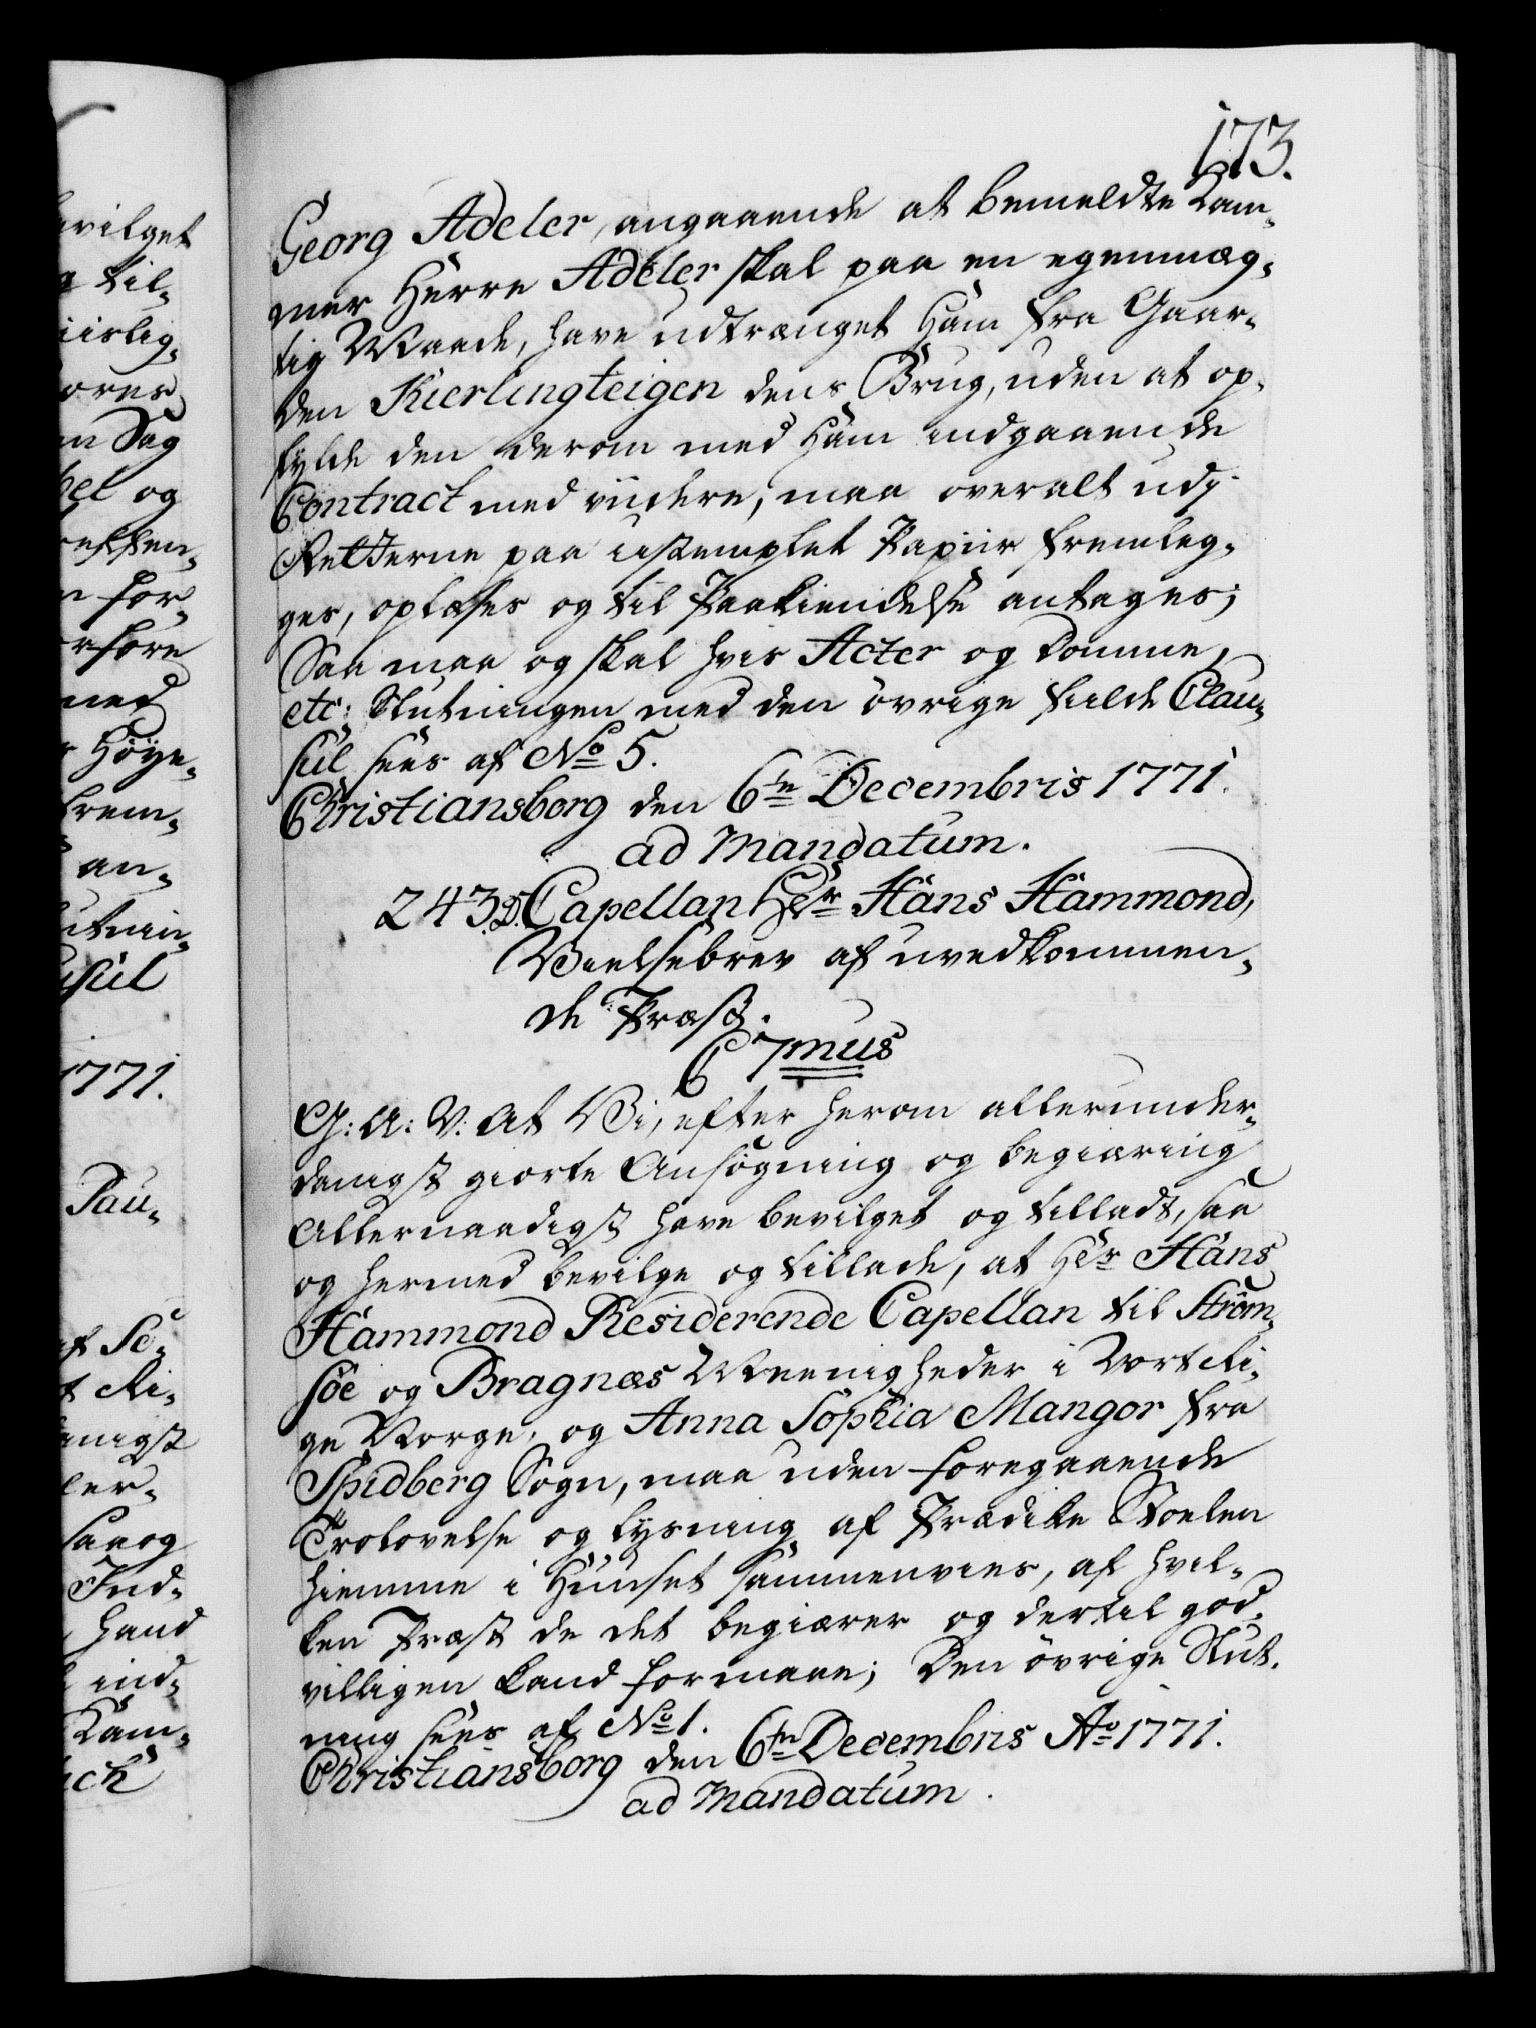 173.
Georg Adeler, angaaende at bemeldte Kam-
mer Herre Adeler skal paa en egenmæg-
tig Maade, have udtrænget Ham fra Gaar-
den Kierlingteigen dens Brug, uden at op-
fylde den derom med Ham indgaaende
Contract med viidere, maa overalt udj
Retterne paa ustemplet Papiir fremleg-
ges, oplæses og til Paakiendelse antages;
Saa maa og skal hvis Acter og Domme,
etc: Slutningen med den övrige fulde Clau-
sul sees af No 5.
Christiansborg den 6te Decembris 1771.
ad Mandatum.
243. D. Capellan Hr Hans Hammond,
Vielsebrev af uvedkommen-
de Præst.
C 7mus
G: A: V: At Vi, efter herom allerunder-
danigst giorte Ansögning og begiæring
Allernaadigst have bevilget og tilladt, saa
og hermed bevilge og tillade, at Hr Hans
Hammond Residerende Capellan til Ström-
söe og Bragnæs Meenigheder i Vort Ri-
ge Norge, og Anna Sophia Mangor fra
Spidberg Sogn, maa uden foregaaende
Trolovelse og Lysning af Prædike Stoelen
hiemme i Huuset sammenvies, af hvil-
ken Præst de det begiærer og dertil god-
villigen kand formaae; Den övrige Slut-
ning sees af No 1.
Christiansborg den 6te Decembris Ao 1771.
ad Mandatum.